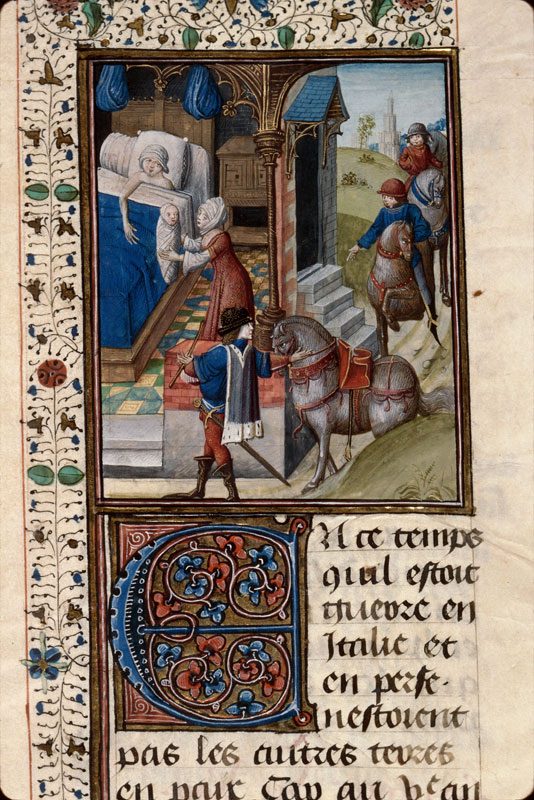 En ce temps
quil estoit
guerre en
Italie et
en perse.
nestoient
pas les autres terres
en paix Car au